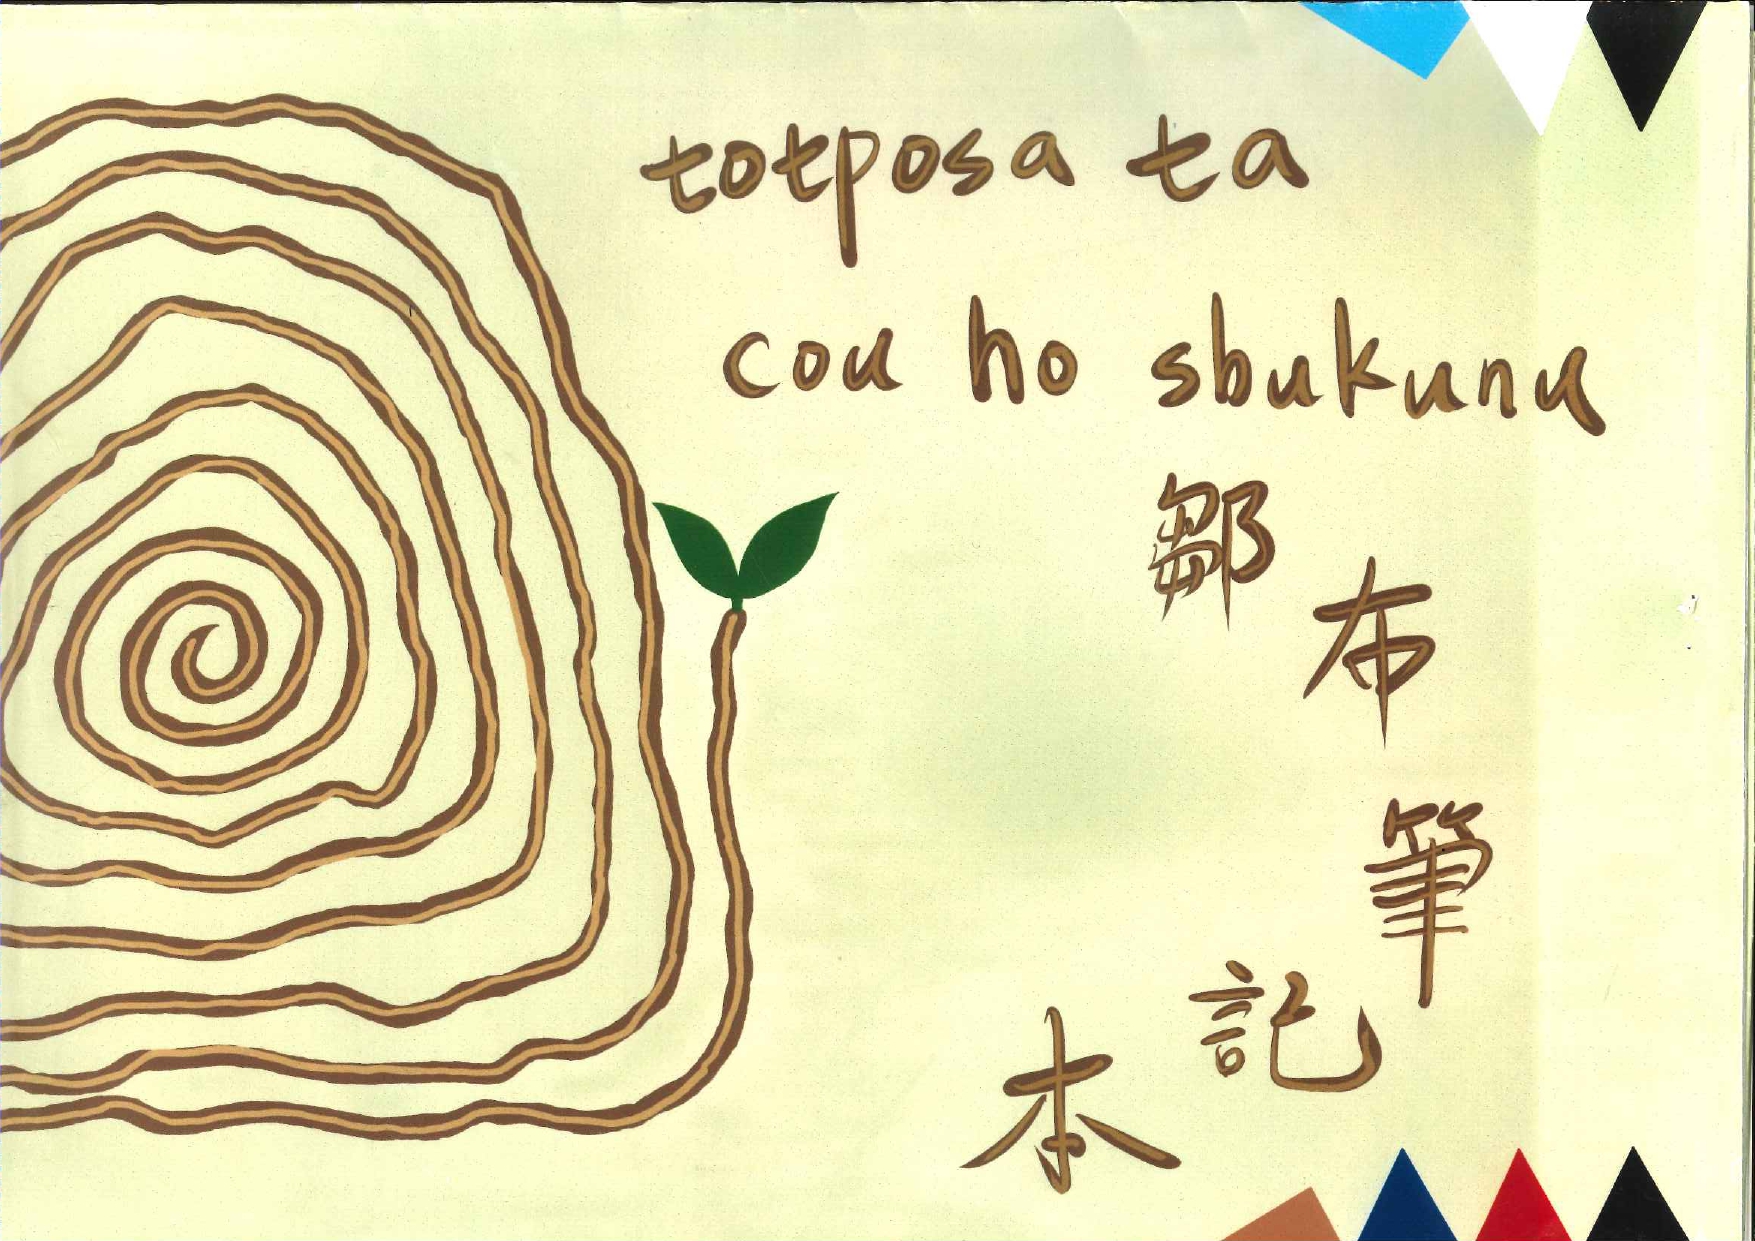 totposa ta
cou ho sbukunu
鄒布筆記本